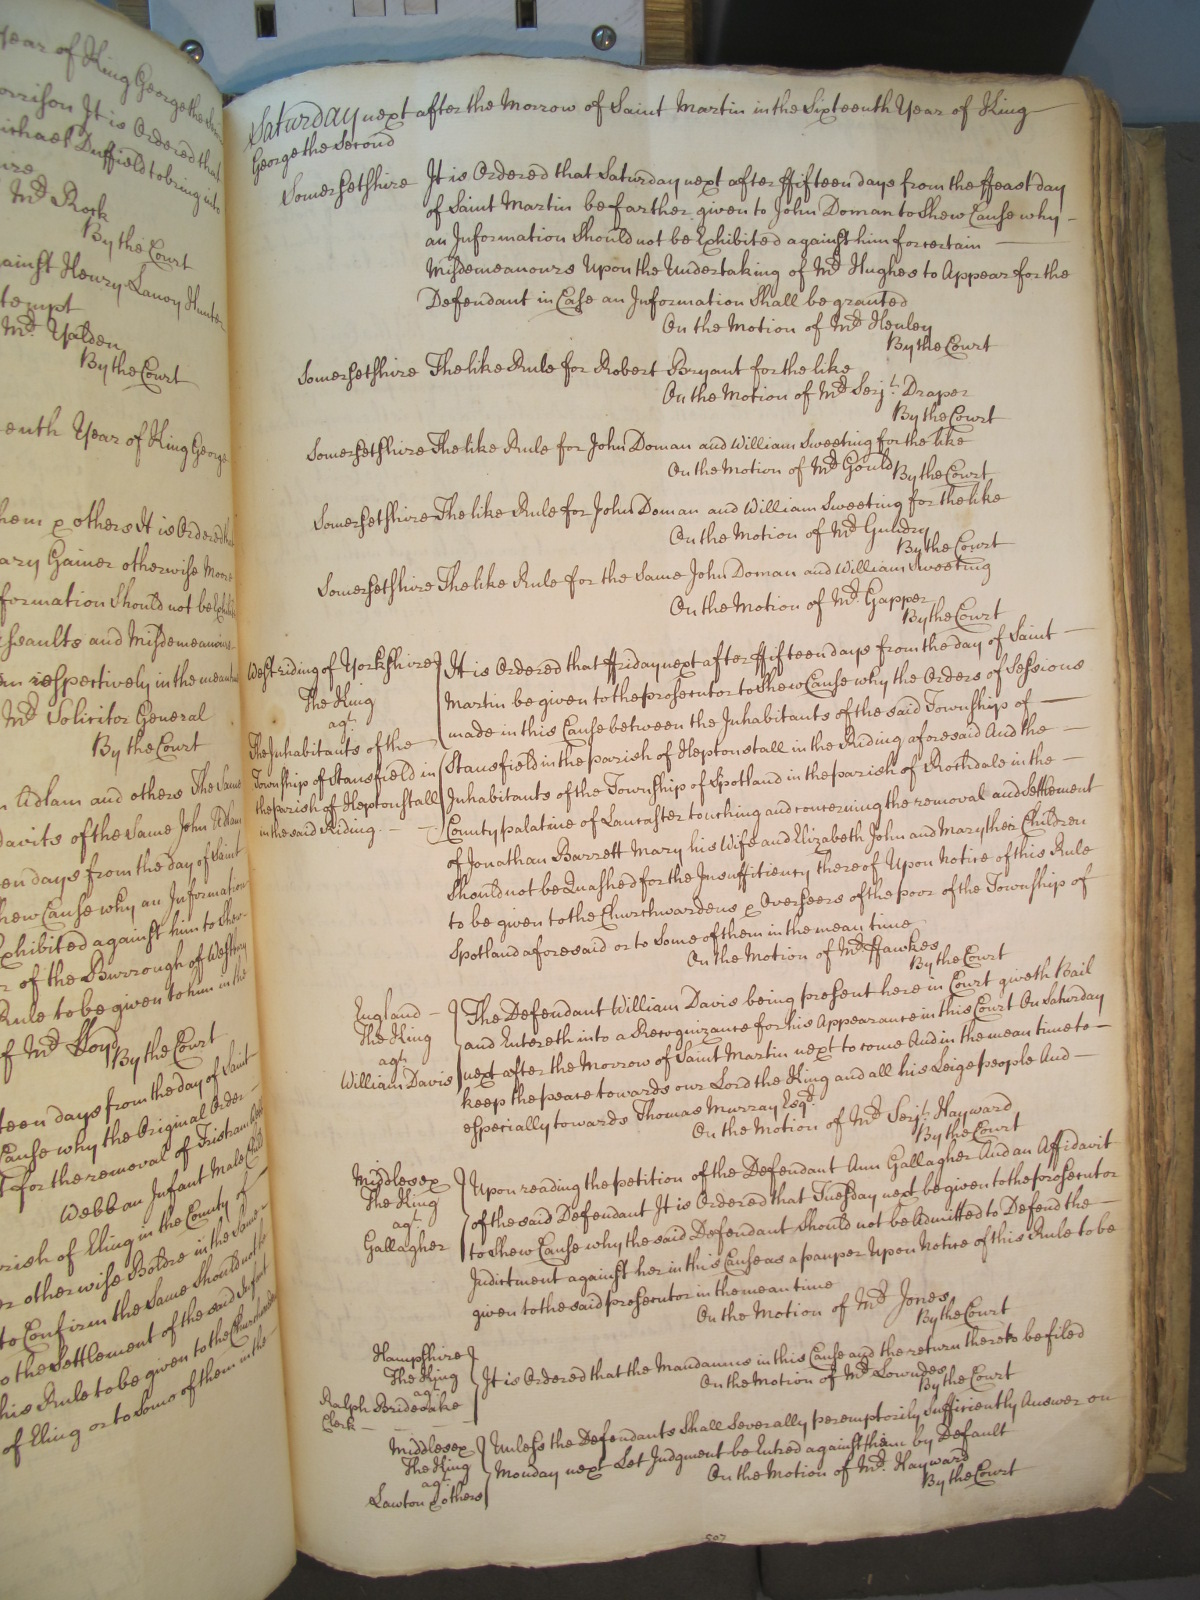 year of King George the
orrison It is Ordered that
ichael Duffield to bring into
Mr. Rock
By the Court
gainst Henry Lanoy Hunter
tempt
Mr. Yalden
By the Court
enth Year of King George
hem & others It is Ordered
ary Gainer otherwise Moore
formation Should not be Exhi
ssaults and Misdemeanours
respectively in the mean
Mr. Solicitor General
By the Court
Adlam and others The Same
davits of the Same John Adlam
en days from the day of Saint
hew Cause why an Information
xhibited against him to Shew
r of the Burrough of Westbury
Rule to be given to him in the
of Mr. Lloyd
By the Court
teen days from the day of Saint
Cause why the Original Order
for the removal of Tristram
Webb an Infant Male Child
rish of Eling in the County of
er otherwise Boldre in the Same
to Confirm the Same Should not be
o the Settlement of the said Infant
his Rule to be given to the Churchwardens
of Eling or to Some of them in the
Saturday next after the Morrow of Saint Martin in the Sixteenth Year of King
George the Second
Somersetshire It is Ordered that Saturday next after ffifteen days from the ffeast day
of Saint Martin be farther given to John Doman to Shew Cause why
an Information Should not be Exhibited against him for certain
Misdemeanours Upon the Undertaking of Mr. Hughes to Appear for the
Defendant in Case an Information Shall be granted
On the Motion of Mr. Henley
By the Court
Somersetshire The like Rule for Robert Bryant for the like
On the Motion of Mr. Serjt. Draper
By the Court
Somersetshire The like Rule for John Doman and William Sweeting for the like
On the Motion of Mr. Gould By the Court
Somersetshire The like Rule for John Doman and William Sweeting for the like
On the Motion of Mr. Gundry
By the Court
Somersetshire The like Rule for the Same John Doman and William Sweeting
On the Motion of Mr. Gapper
By the Court
West riding of Yorkshire
The King
agt.
The Inhabitants of the
Township of Stansfield in
the parish of Heptonstall
in the said Riding
It is Ordered that ffriday next after ffifteen days from the day of Saint
Martin be given to the prosecutor to Shew Cause why the Orders of Sessions
made in this Cause between the Inhabitants of the said Township of
Stansfield in the parish of Heptonstall in the Riding aforesaid And the
Inhabitants of the Township of Spotland in the parish of Rochdale in the
County palatine of Lancaster touching and concerning the removal and Settlement
of Jonathan Barrett Mary his Wife and Elizabeth John and Mary their Children
Should not be Quashed for the Insufficiency thereof Upon Notice of this Rule
to be given to the Churchwardens & Overseers of the poor of the Township of
Spotland aforesaid or to Some of them in the mean time
On the Motion of Mr. ffawkes
By the Court
England
The King
agt.
William Davis
The Defendant William Davis being present here in Court giveth Bail
and Entereth into a Recognizance for his Appearance in this Court On Saturday
next after the Morrow of Saint Martin next to come And in the mean time to
keep the peace towards our Lord the King and all his Leige people And
especially towards Thomas Murray Esqr.
On the Motion of Mr. Serjt. Hayward
By the Court
Middlesex
The King
agt.
Gallagher
Upon reading the petition of the Defendant Ann Gallagher And an Affidavit
of the said Defendant It is Ordered that Tuesday next be given to the prosecutor
to Shew Cause why the said Defendant Should not be Admitted to Defend the
Indictment against her in this Cause as a pauper Upon Notice of this Rule to be
given to the said prosecutor in the mean time
On the Motion of Mr. Jones
By the Court
Hampshire
The King
agt.
Ralph Brideoake
Clerk
It is Ordered that the Mandamus in this Cause and the return thereto be filed
On the Motion of Mr. Lowndes
By the Court
Middlesex
The King
agt.
Lawton & others
Unless the Defendants Shall Severally peremptorily Sufficiently Answer on
Monday next Let Judgment be Entred against them by Default
On the Motion of Mr. Hayward
By the Court
507